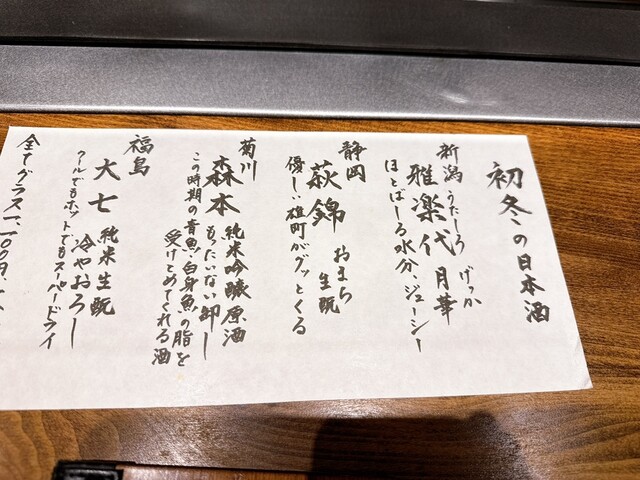 初冬の日本酒
新潟 うたしろ げっか
雅楽代 月華
ほとばしる水分、ジューシー
静岡
萩錦 おまち 生酛
優しい雄町がグッとくる
菊川
森本 純米吟醸原酒
もったいない卸し
この時期の青魚白身魚の脂を
受けとめてくれる酒
福島
大七 純米生酛
冷やおろし
クールでもホットでもスーパードライ
全てグラス一、一〇〇円